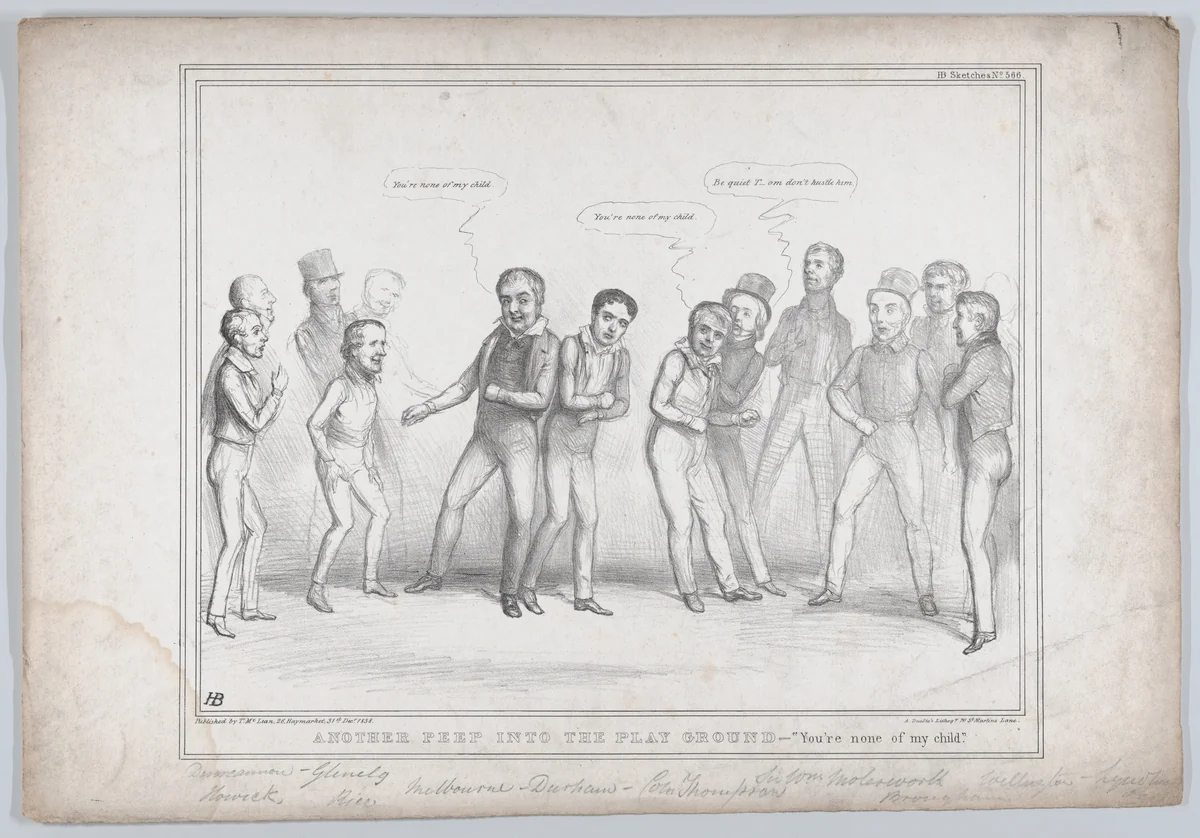 HB Sketches No. 566.
You're none of my child.
Be quiet T_om don't hustle him.
You're none of my child.
HB
Published by T. McLean, 26, Haymarket, 31st Decr. 1838.
A. Ducôte's Lithogy. 70 St. Martins Lane.
ANOTHER PEEP INTO THE PLAY GROUND—"You're none of my child".
Duncannon - Glenelg Melbourne - Durham - Col. Thompson Sir Wm Molesworth Wellington - Lynd
Howick, Rice Brougham